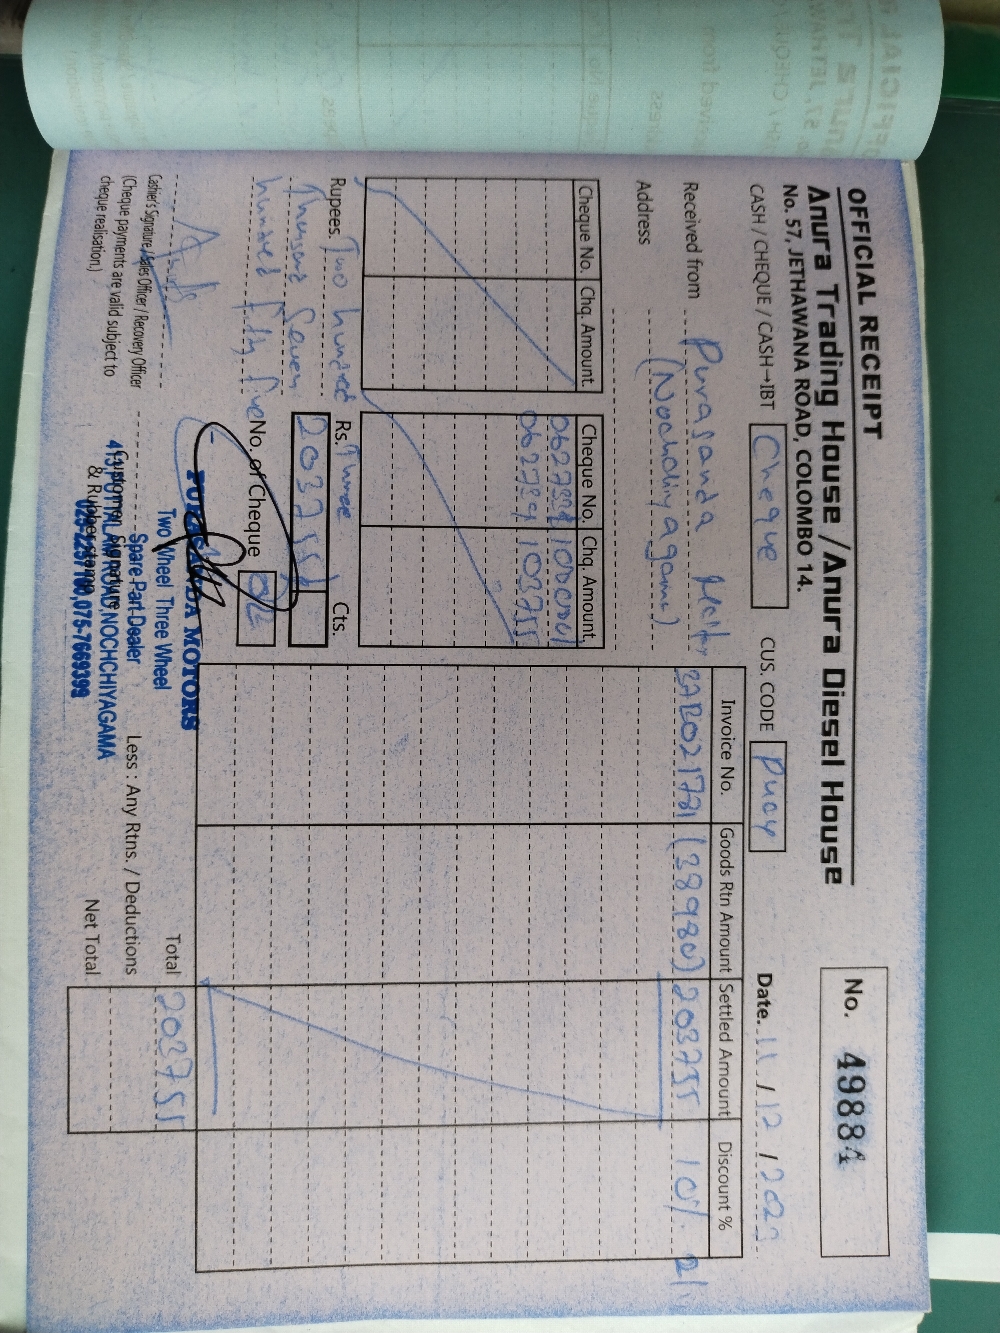 OFFICIAL RECEIPT
Anura Trading House / Anura Diesel House
No. 57, JETHAWANA ROAD, COLOMBO 14.
No. 49884
CASH / CHEQUE / CASH→IBT Cheque CUS. CODE PUCY Date. 11 / 12 /
Received from Purasanda
Address (Nochchiyagama)
Cheque No. Chq. Amount Cheque No. Chq. Amount
062739 103755
Invoice No. Goods Rtn Amount Settled Amount Discount %
(38980) 203755 10%
Rupees. Two hundred Three
Thousand Seven
hundred fifty five
Rs. Cts
203755
No. of Cheque 02
Total 203755
Less : Any Rtns. / Deductions
Net Total
Cashier's Signature / Sales Officer / Recovery Officer
(Cheque payments are valid subject to
cheque realisation.)
Customer Signature
& Rubber stamp
MOTORS
Two Wheel Three Wheel
Spare Part Dealer
PUTTALAM ROAD, NOCHCHIYAGAMA